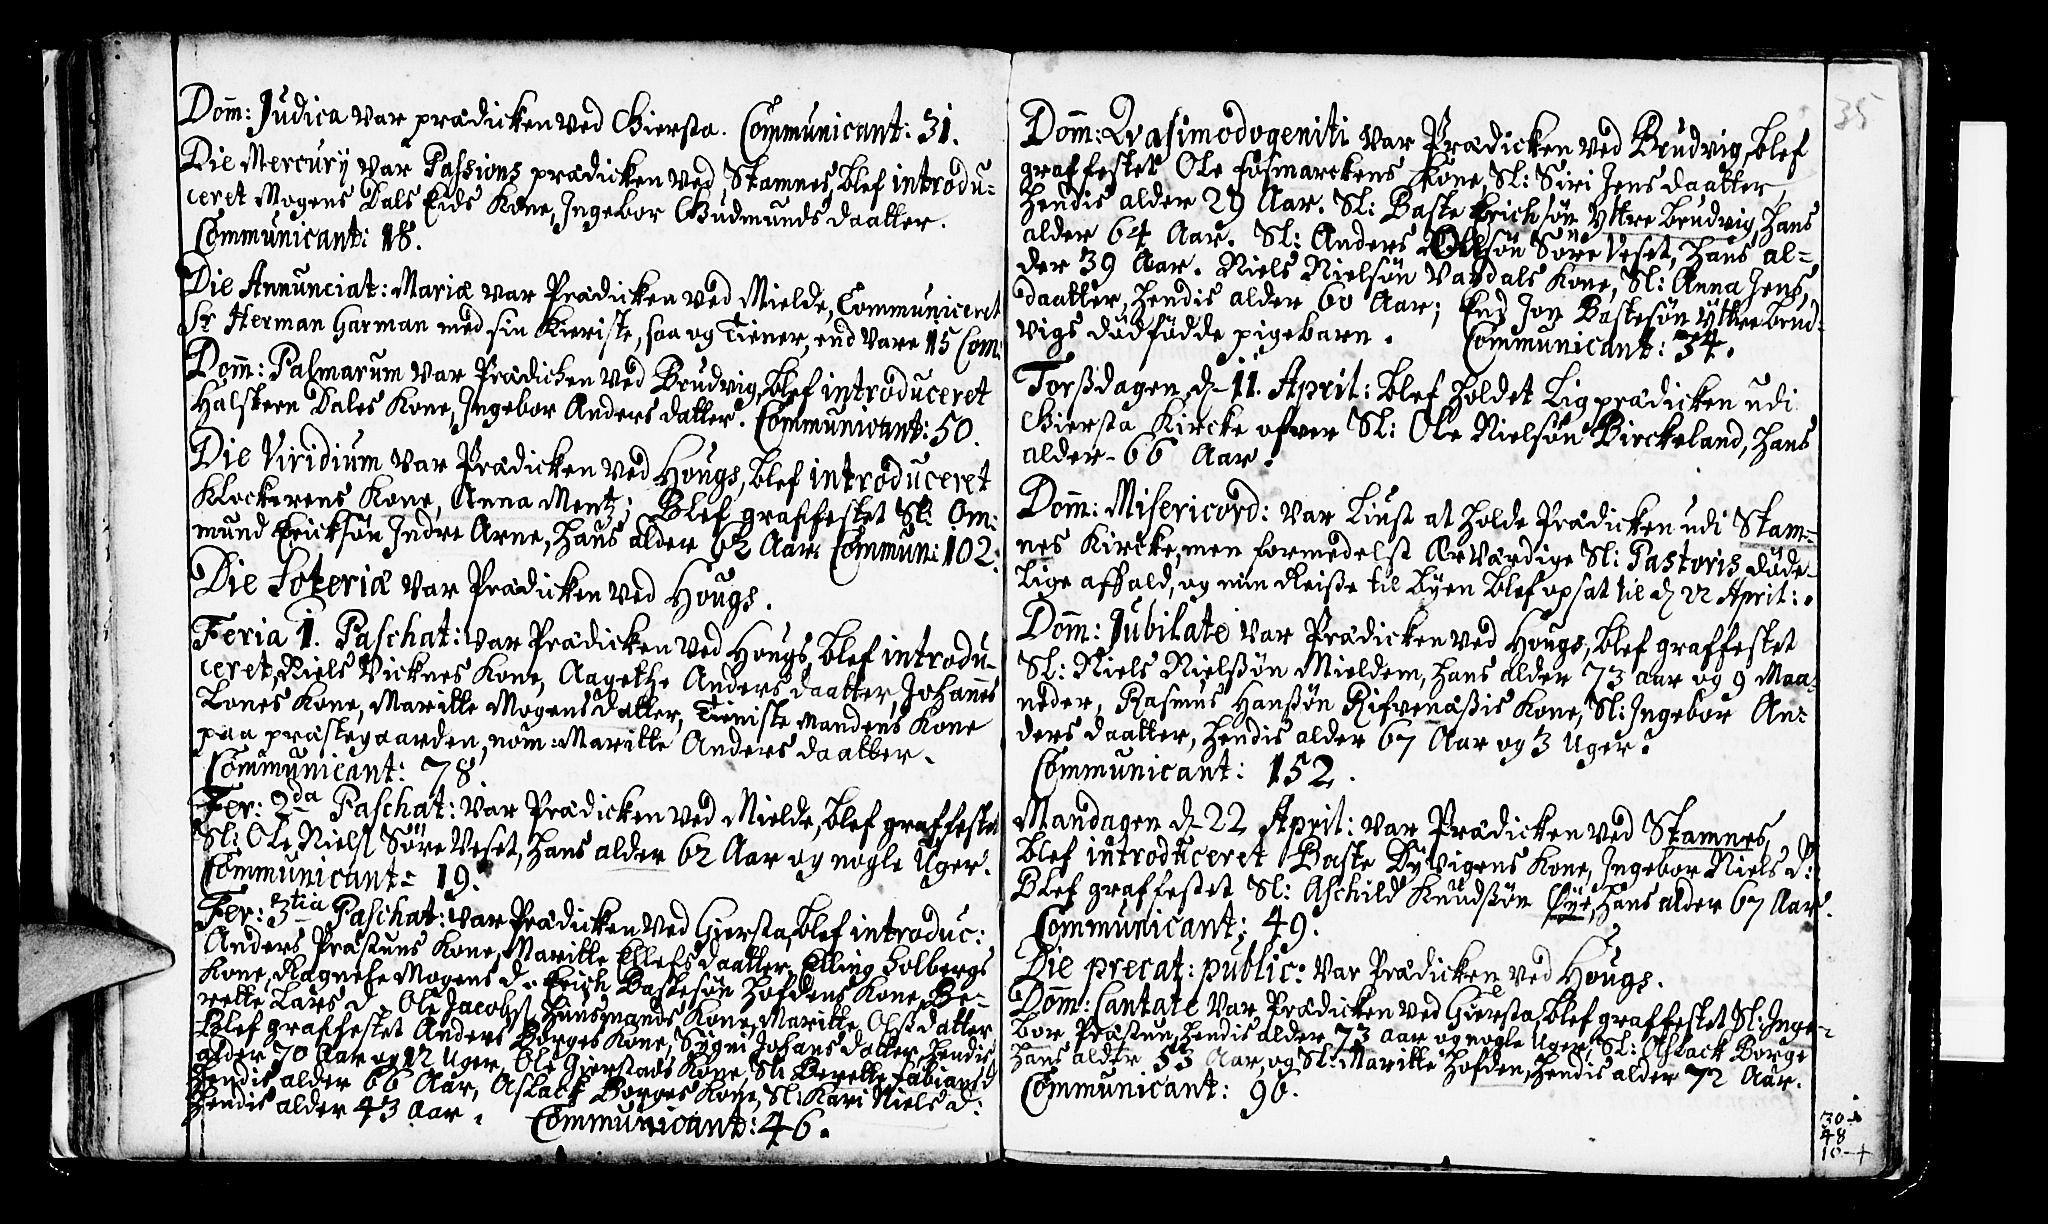 Dom̄: Judica var prædicken ved Giersta. Communicant: 31.
Die Mercurÿ var Passions prædicken ved Stamnes, blef introdu-
ceret Mogens Dals Eids Kone, Ingebor Gudmunds daatter.
Communicant: 18.
Die Annunciat: Mariæ var Prædicken ved Mielde, Communiceret
Sr Herman Garman med sin Kieriste, saa og Tiener, end vare 15 Com:
Dom̄: Palmarum var Prædichen ved Brudvig, blef introduceret
Halsteen Dales Kone, Ingebor Anders datter. Communicant: 50.
Die Viridium var Prædicken ved Hougs, blef introduceret
Klockerens Kone, Anna Mentz; Blef graffestet Sl: Om-
mund Erichsøn Indre Arne, hans alder 62 Aar. Commun: 102:
Die Soteriæ var Prædicken ved Hougs.
Feria 1. Paschat: var Prædicken ved Hougs, blef introdu-
ceret, Niels Vicknes Kone, Aagethe Anders daatter, Johannes
Lones Kone, Maritte Mogens datter, Tieniste mandens Kone
paa præstegaarden, nom: Maritte Anders daatter.
Communicant: 78.
Fer: 2da Paschat: var Prædicken ved Mielde, blef graffestet
Sl: Ole Niels: Søre Veset, hans alder 62 Aar og nogle Uger.
Communicant: 19.
Fer: 3tia Paschat: var Prædicken ved Giersta, blef introduc:
Anders Præstuns Kone, Maritte Ellefs daatter, Elling Solbergs
Kone, Ragnele Mogens d. Erich Bastesøn Hofdens Kone, Be-
rette Lars d. Ole Jacobs: Huusmands Kone, Maritte Olss datter
Blef graffestet Anders Borges Kone, Sÿgni Johans datter, hendis
alder 70 Aar og 12 Uger, Ole Gierstads Kone, Sl: Berette Fabians d
hendis alder 66 Aar, Aslack Borges Kone, Sl: Kari Niels d:
hendis alder 43 Aar. Communicant: 46.
35
Dom̄: Qvasimodogeniti var Prædicken ved Brudvig, blef
graffestet Ole Fosmarckens Kone, Sl: Siri Jens daatter,
hendis alder 29 Aar. Sl: Baste Erichsøn Yttre Brudvig, hans
alder 64 Aar. Sl: Anders Olsøn Søre Veset, hans al-
der 39 Aar. Niels Nielsøn Vardals Kone, Sl: Anna Jens
daatter, hendis alder 60 Aar; End Jon Bastesøn Yttre Brud-
vigs dødfødde pigebarn. Communicant: 34.
Torsdagen d. 11. April: blef holdet Ligprædicken udi
Giersta Kircke ofver Sl: Ole Nielsøn Birckeland, hans
alder 66 Aar.
Dom̄: Misericord: var Liust at holde Prædicken udi Stam-
nes Kircke, men formedelst Ærværdige Sl: Pastoris døde-
lige affald, og min Reise til Byen blef opsat til d. 22 April:.
Dom̄: Jubilate var Prædicken ved Hougs, blef graffestet
Sl: Niels Nielsøn Mieldem, hans alder 73 aar og 9 Maa-
neder, Rasmus Hansøn Rifvenæsis Kone, Sl: Ingebor An-
ders daatter, hendis alder 67 Aar og 3 Uger.
Communicant: 152.
Mandagen d. 22 April: var Prædicken ved Stamnes,
blef introduceret Baste Dyvigens Kone, Ingebor Niels d:
Blef graffestet Sl: Aschild Knudsøn Øÿe, hans alder 67 Aar.
Communicant: 49.
Die precat: public: var Prædicken ved Hougs.
Dom̄: Cantate var Prædicken ved Giersta, blef graffestet Sl: Inge-
bor Præstun, hendis alder 73 aar og nogle Uger, Sl: Aslack Borge
hans alder 53 Aar, og Sl: Maritte Hofden, hendis alder 72 Aar.
Communicant: 90.
30
48
10